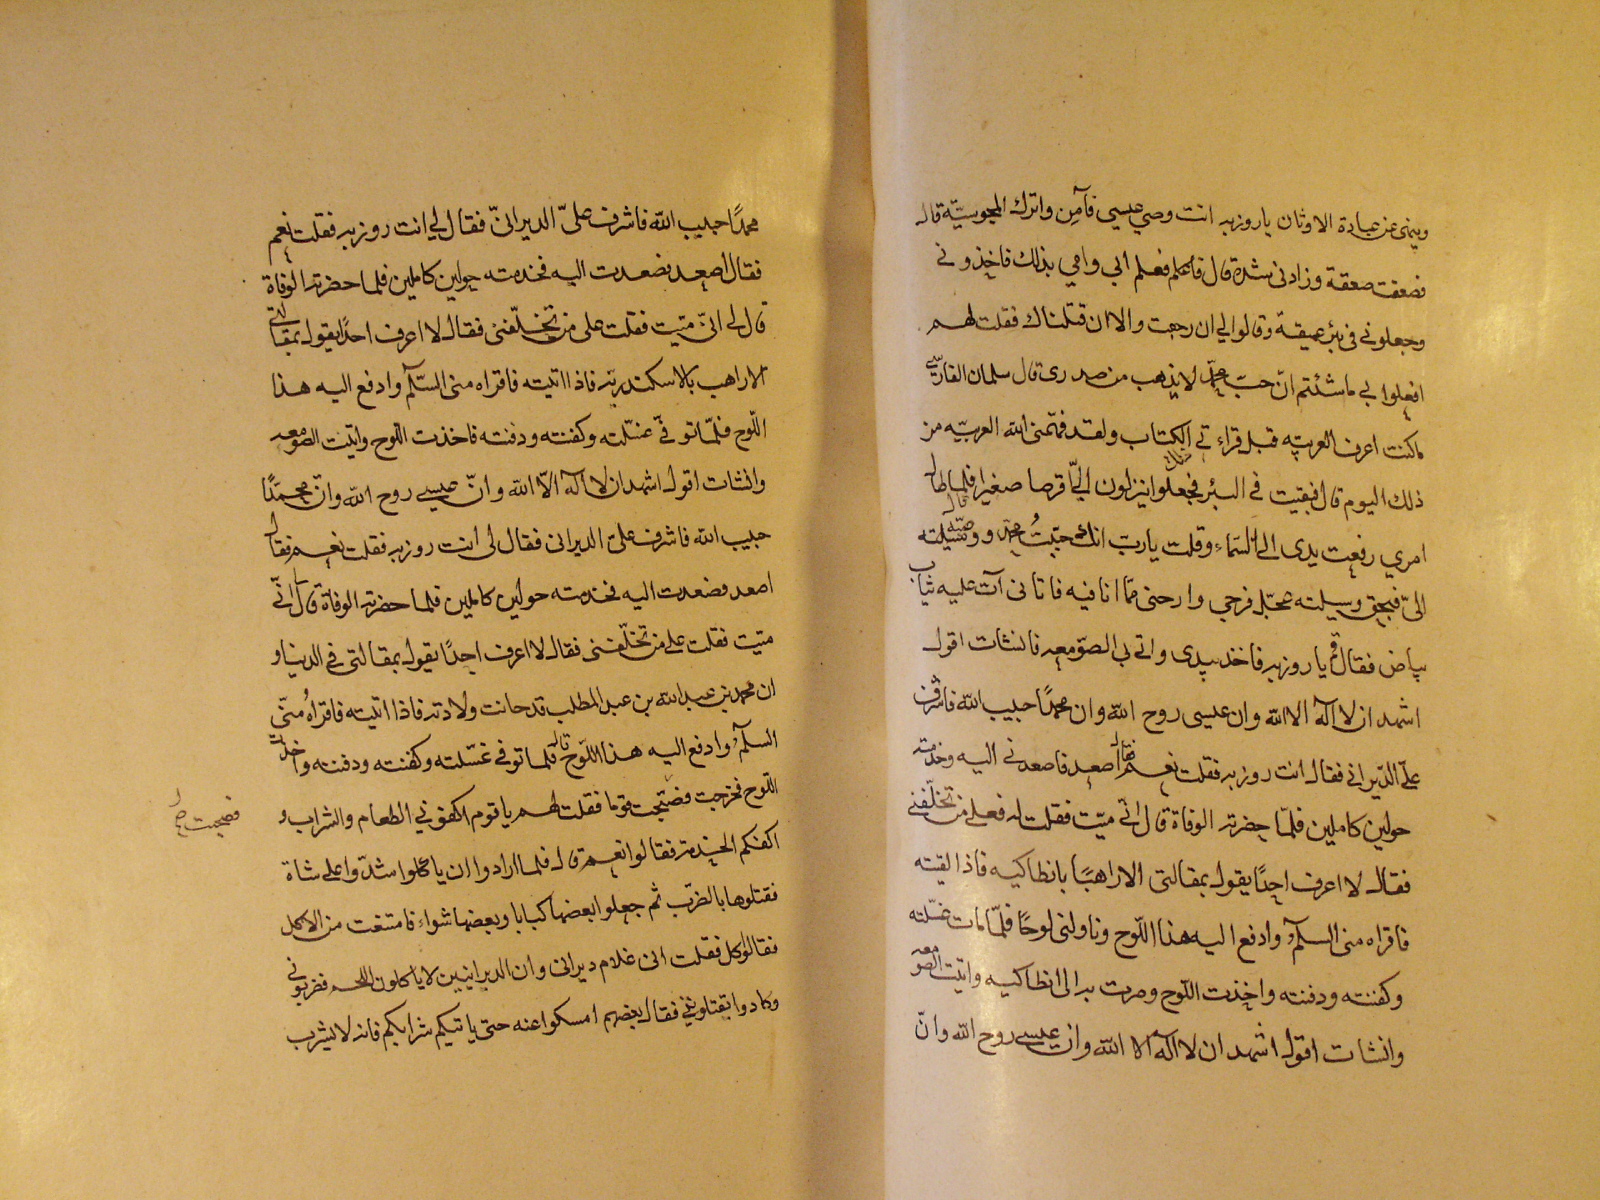 وينهى عن عبادة الاوثان ياروزبه انت وصي عيسى فآمن واترك المجوسيّة قال
فصعقت صعقة وزادنى شدة قال فعلم ابي وامي بذلك فاخذونى
وجعلوني في بئر عميقة وقالوا لي ان رجعت والا ان قتلناك فقلت لهم
افعلوا بي ماشئتم انّ حبّ محمّد لايذهب من صدرى قال سلمان الفارسي
ماكنت اعرف العربيّه قبل قراءتى الكتاب ولقد فهّمنى الله العربيّه من
ذلك اليوم قال فبقيت في البئر فجعلوا ينزلون اليّ اقرصا صغيرا فلما طال
امري رفعت يدى الى السّماء وقلت ياربّ انك حبّبتَ محمّد ووصيّه
الىّ فبحق وسيلته عجّل فرجي وارحنى ممّا انا فيه فاتانى آت عليه ثياب
بياض فقال قم ياروزبه فاخذ بيدى واتى بي الصّومعه فانشات اقول
اشهد ان لا اله الا الله وان عيسى روح الله وان محمدًا حبيب الله فاشرف
علىّ الدّيرانى فقال انت روزبه فقلت نعم فقال اصعد فاصعدنى اليه وخدمته
حولين كاملين فلمّا حضرته الوفاة قال انّى ميّت فقلت له فعلى من تخلّفنى
فقال لا اعرف احدًا يقول بمقالتى الا راهبًا بانطاكيه فاذا لقيته
فاقراه منى السلام وادفع اليه هذا اللّوح وناولنى لوحًا فلمّا مات غسّلته
وكفنته ودفنته واخذت اللّوح وصرت به الى انطاكيه واتيت الصّومعه
وانشات اقول اشهد ان لا اله الا الله وان عيسى روح الله وانّ
محمّدًا حبيب الله فاشرف علىّ الديرانىّ فقال لي انت روزبه فقلت نعم
فقال اصعد فصعدت اليه فخدمته حولين كاملين فلما حضرته الوفاة
قال لى انّى ميّت فقلت على من تخلّفنى فقال لا اعرف احدًا يقول بمقالتي
الا راهب بالاسكندريّه فاذا اتيته فاقراه منى السّلام وادفع اليه هذا
اللّوح فلمّا توفّى غسّلته وكفنته ودفنته فاخذت اللّوح واتيت الصّومعه
وانشات اقول اشهد ان لا اله الّا الله وانّ عيسى روح الله وانّ محمّدًا
حبيب الله فاشرف علىّ الديرانى فقال لى انت روزبه فقلت نعم فقال
اصعد فصعدت اليه فخدمته حولين كاملين فلما حضرته الوفاة قال انّى
ميّت فقلت على من تخلّفنى فقال لا اعرف احدًا يقول بمقالتى في الدنيا و
ان محمد بن عبد الله بن عبد المطلب قد حانت ولادته فاذا اتيته فاقراهُ منّى
السلام وادفع اليه هذا اللّوح قال فلما توفى غسّلته وكفنته ودفنته واخذت
اللّوح فخرجت فصحبت قوما فقلت لهم ياقوم اكفونى الطعام والشراب و
فصحبت
اكفكم الخدمة فقالوا نعم قال فلما ارادوا ان ياكلوا شدّوا على شاة
فقتلوها بالضّرب ثم جعلوا بعضها كبابا وبعضها شواء فامتنعت من الاكل
فقالوا كل فقلت انى غلام ديرانى وان الديرانيين لاياكلون اللحم فضربونى
وكادوا يقتلونني فقال بعضهم امسكوا عنه حتى ياتيكم شرابكم فانه لايشرب